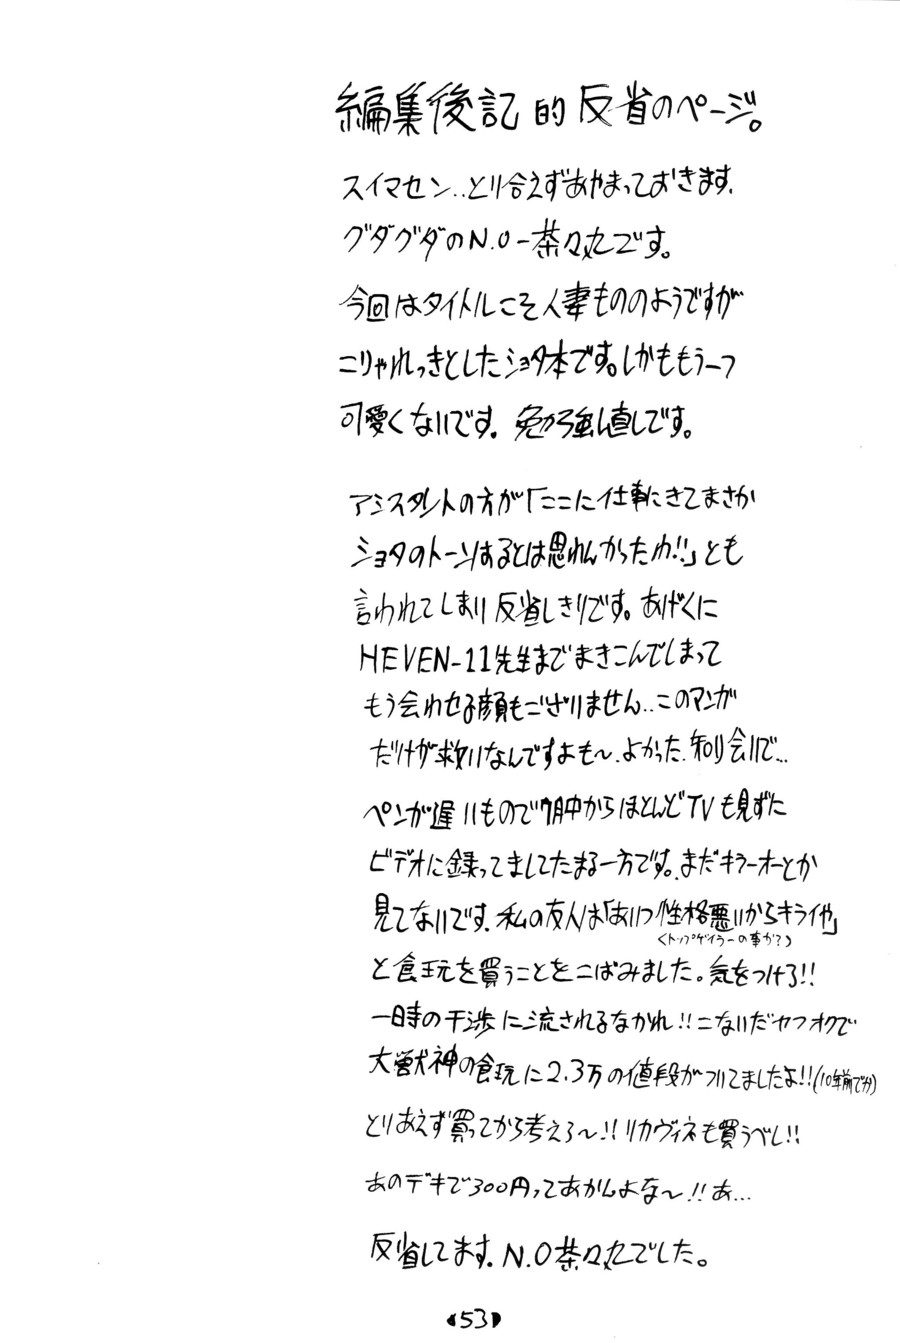 編集後記的反省のページ。
スイマセン‥とり合えずあやまっておきます。
グダグダのN.O-茶々丸です。
今回はタイトルこそ人妻もののようですが
こりゃれっきとしたショタ本です。しかももう一つ
可愛くないです。勉強し直しです。
アシスタントの方が「ここに仕事にきてまさか
ショタのトーンはるとは思わんかったわ!!」とも
言われてしまい反省しきりです。あげくに
HEVEN-11先生までまきこんでしまって
もう会わせる顔もございません‥このマンガ
だけが救いなんですよも〜。よかった。知り合いで…
ペンが遅いもので7月中からほとんどTVも見ずに
ビデオに録ってましてたまる一方です。まだキラーオーとか
見てないです。私の友人は「あいつ性格悪いからキライや」
<トップゲイラーの事か?>
と食玩を買うことをこばみました。気をつけろ!!
一時の干渉に流されるなかれ!!こないだヤフオクで
大獣神の食玩に2.3万の値段がついてましたよ!!(10年前で)
とりあえず買ってから考えろ〜!!リカヴィネも買うべし!!
あのデキで300円ってあかんよな〜!!あ…
反省してます。N.O茶々丸でした。
53